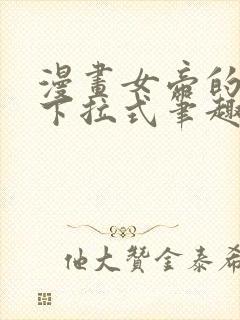 漫畫女帝的
下拉式筆趣
他大贊金泰希